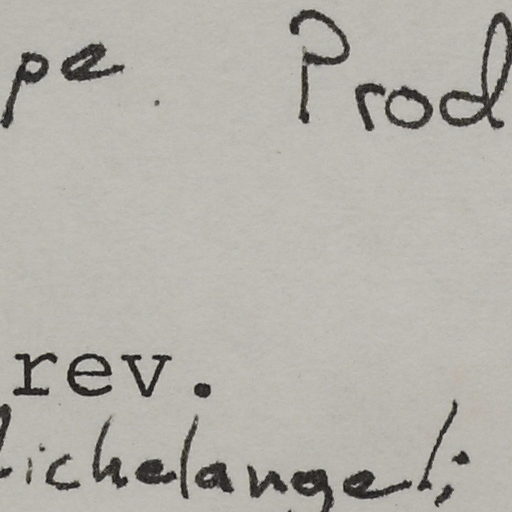 pe. Prod
rev.
Michelangeli